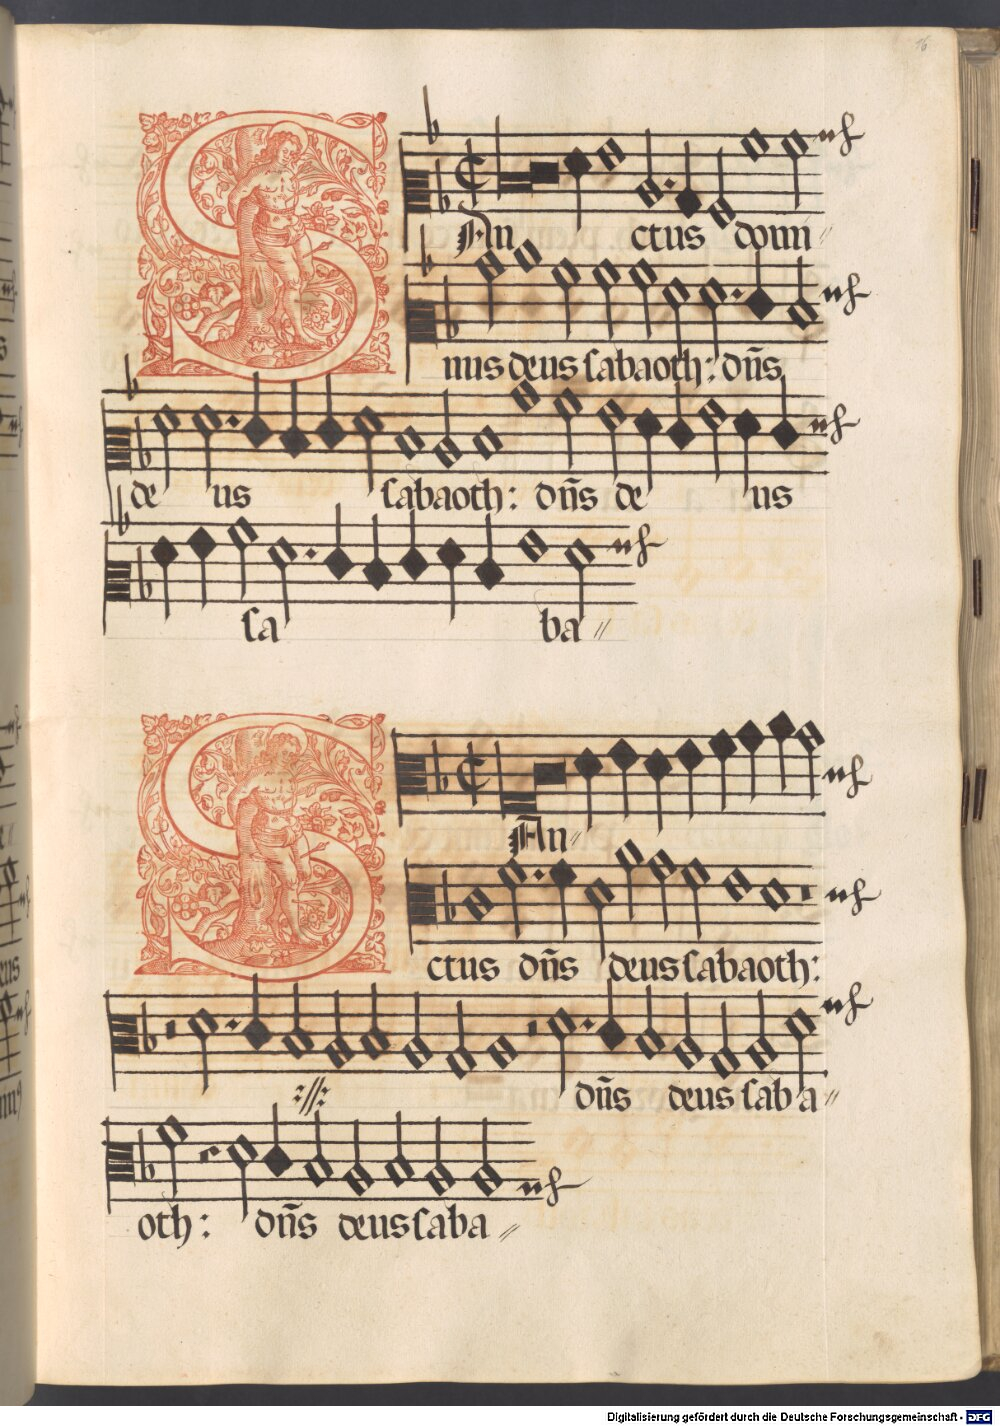 16
SAn ctus domi〃
nus deus sabaoth: dn̄s
de us sabaoth: dn̄s de us
sa ba〃
SAn〃
ctus dn̄s deus sabaoth:
:〃: dn̄s deus sab a〃
oth: dn̄s deus saba〃
Digitalisierung gefördert durch die Deutsche Forschungsgemeinschaft - DFG